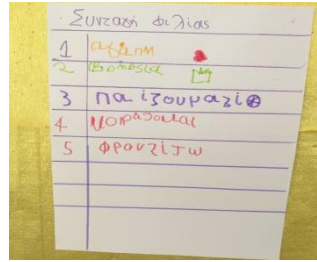 Συνταγή φιλίας
1 αγάπη
2 Βοήθεια
3 παίζουμαζί
4 μοιράζομαι
5 φροντίζω